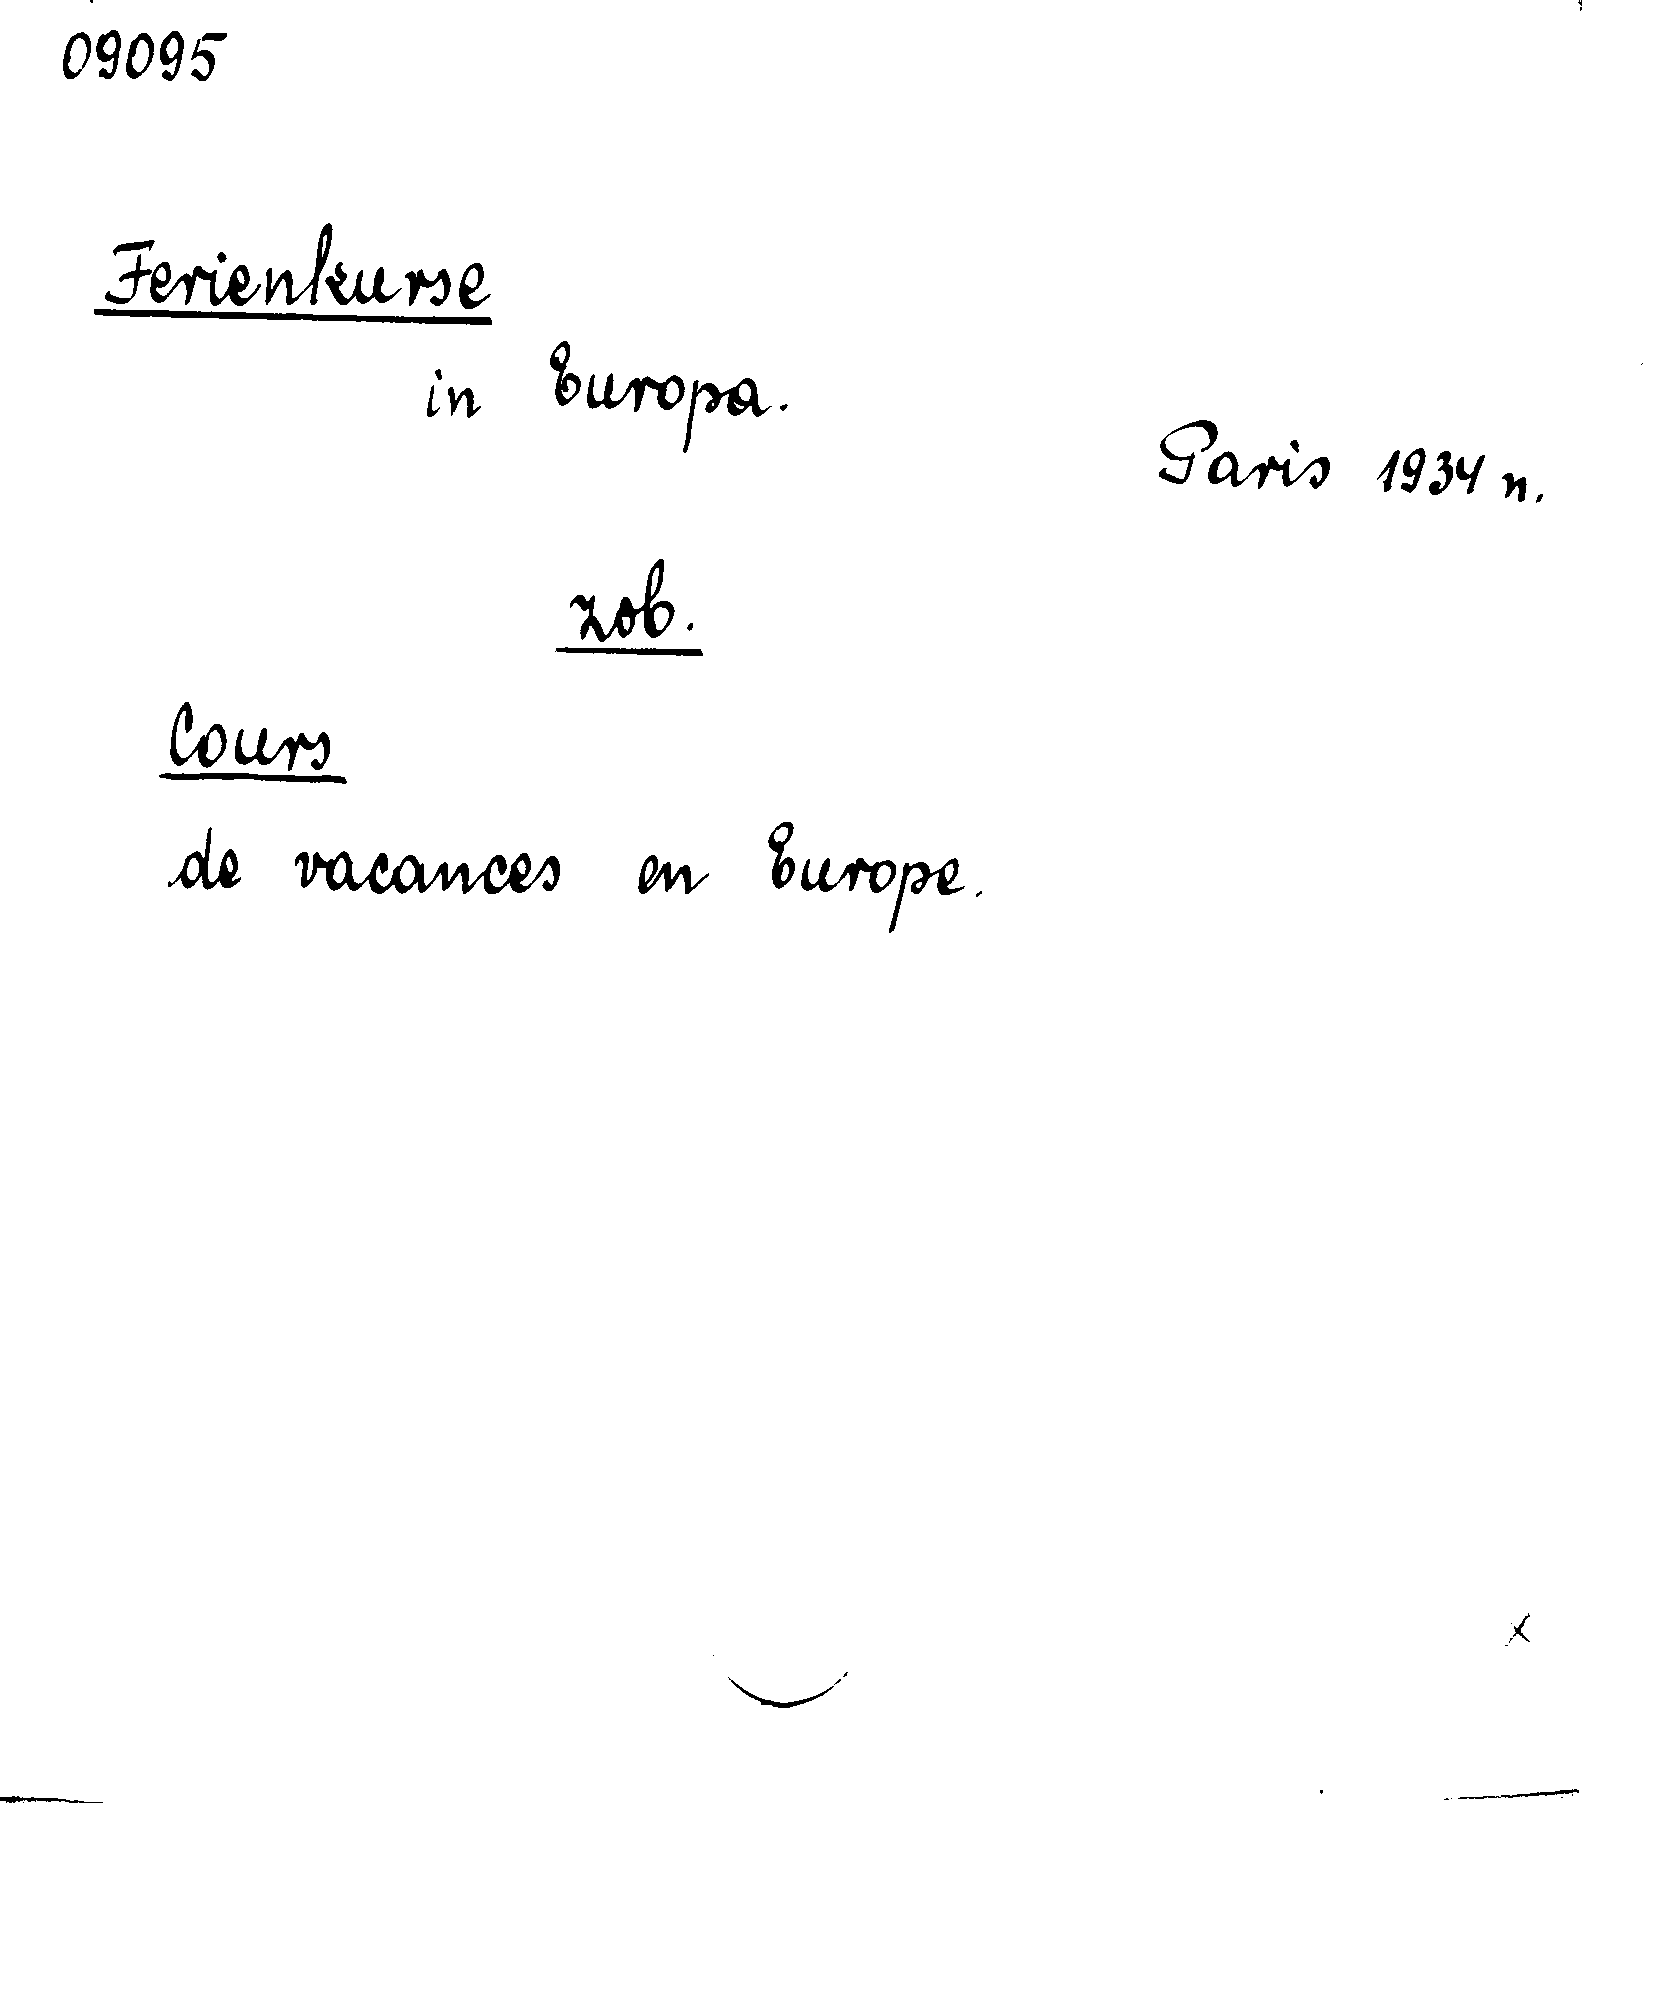 09095
Ferienkurse
in Europa.
Paris 1934 n.
zob.
Cours
de vacances en Europe.
x